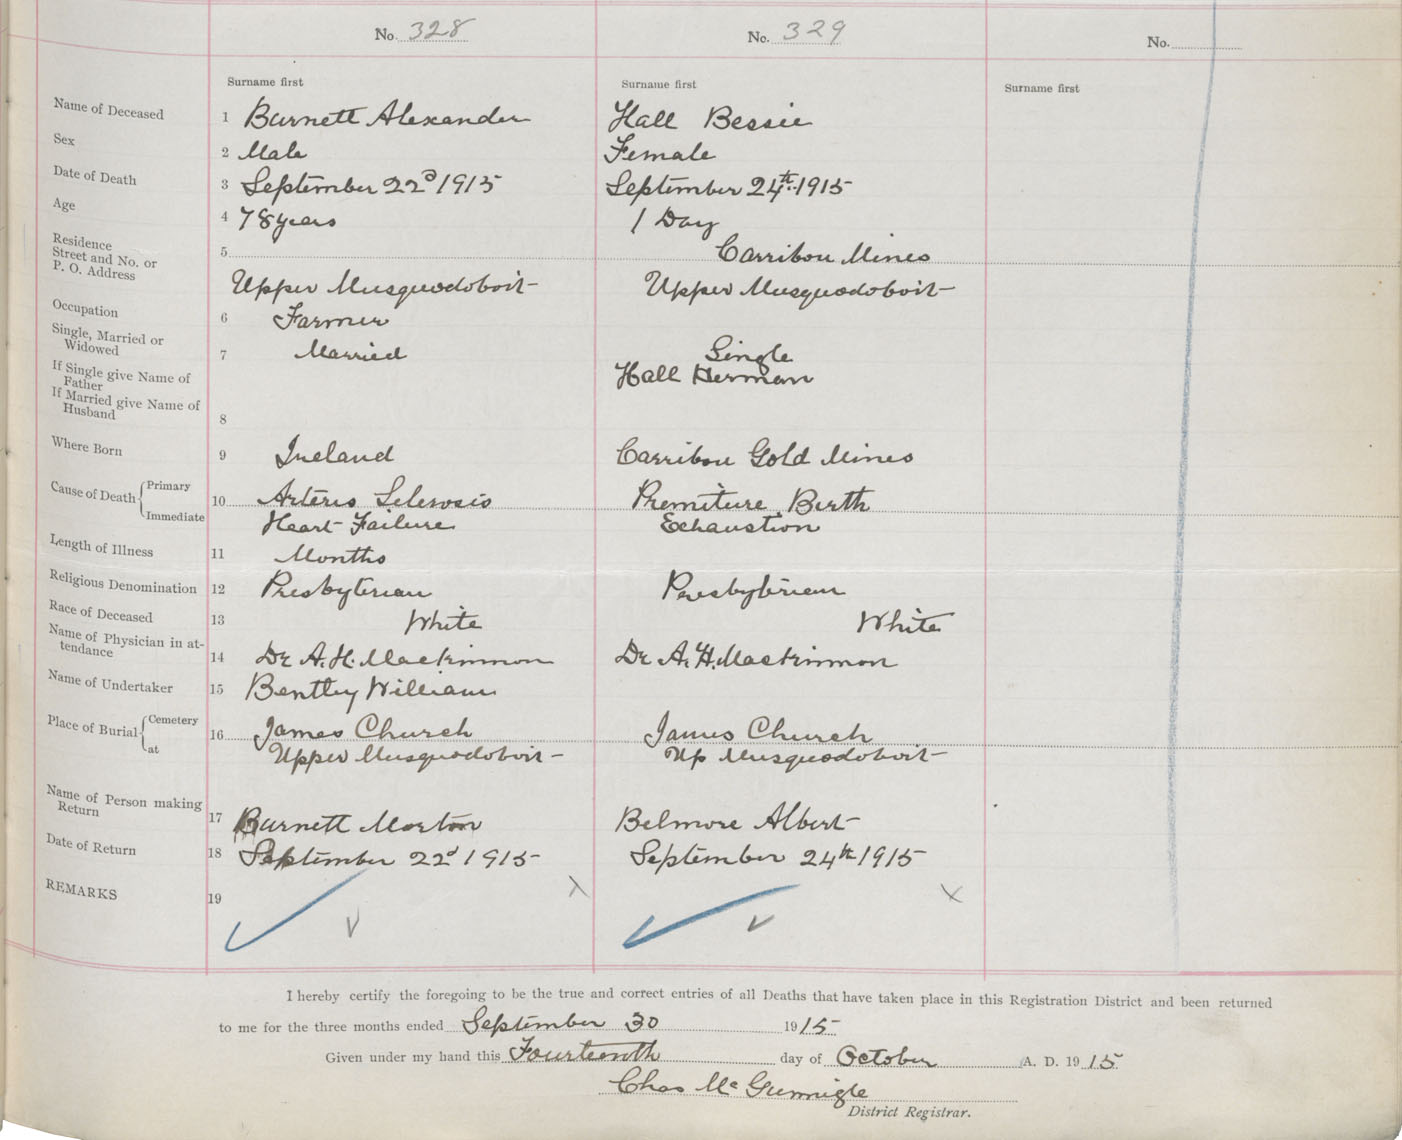 No. 328
No. 329
No.
Surname first
Surname first
Surname first
Name of Deceased 1 Burnett Alexander Hall Bessie
Sex 2 Male Female
Date of Death 3 September 22d 1915 September 24th 1915
Age 4 78 years 1 Day
Residence
Street and No. or
P. O. Address
5 Carribou Mines
Upper Musquodoboit Upper Musquodoboit
Occupation 6 Farmer
Single, Married or
Widowed
7 Married Single
If Single give Name of
Father
Hall Herman
If Married give Name of
Husband
8
Where Born 9 Ireland Carribou Gold Mines
Cause of Death { Primary 10 Arterio Sclerosis Premiture Berth
Immediate Heart Failure Exhaustion
Length of Illness 11 Months
Religious Denomination 12 Presbyterian Presbyterian
Race of Deceased 13 White White
Name of Physician in at-
tendance
14 Dr A. H. MacKinnon Dr A. H. MacKinnon
Name of Undertaker 15 Bentley William
Place of Burial { Cemetery 16 James Church James Church
at Upper Musquodoboit Up Musquodoboit
Name of Person making
Return
17 Burnett Morton Belmore Albert
Date of Return 18 September 22d 1915 September 24th 1915
REMARKS 19
I hereby certify the foregoing to be the true and correct entries of all Deaths that have taken place in this Registration District and been returned
to me for the three months ended September 30 1915
Given under my hand this Fourteenth day of October A. D. 1915
Chas Mc Gunnigle
District Registrar.